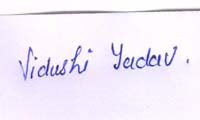 Vidushi Yadav.